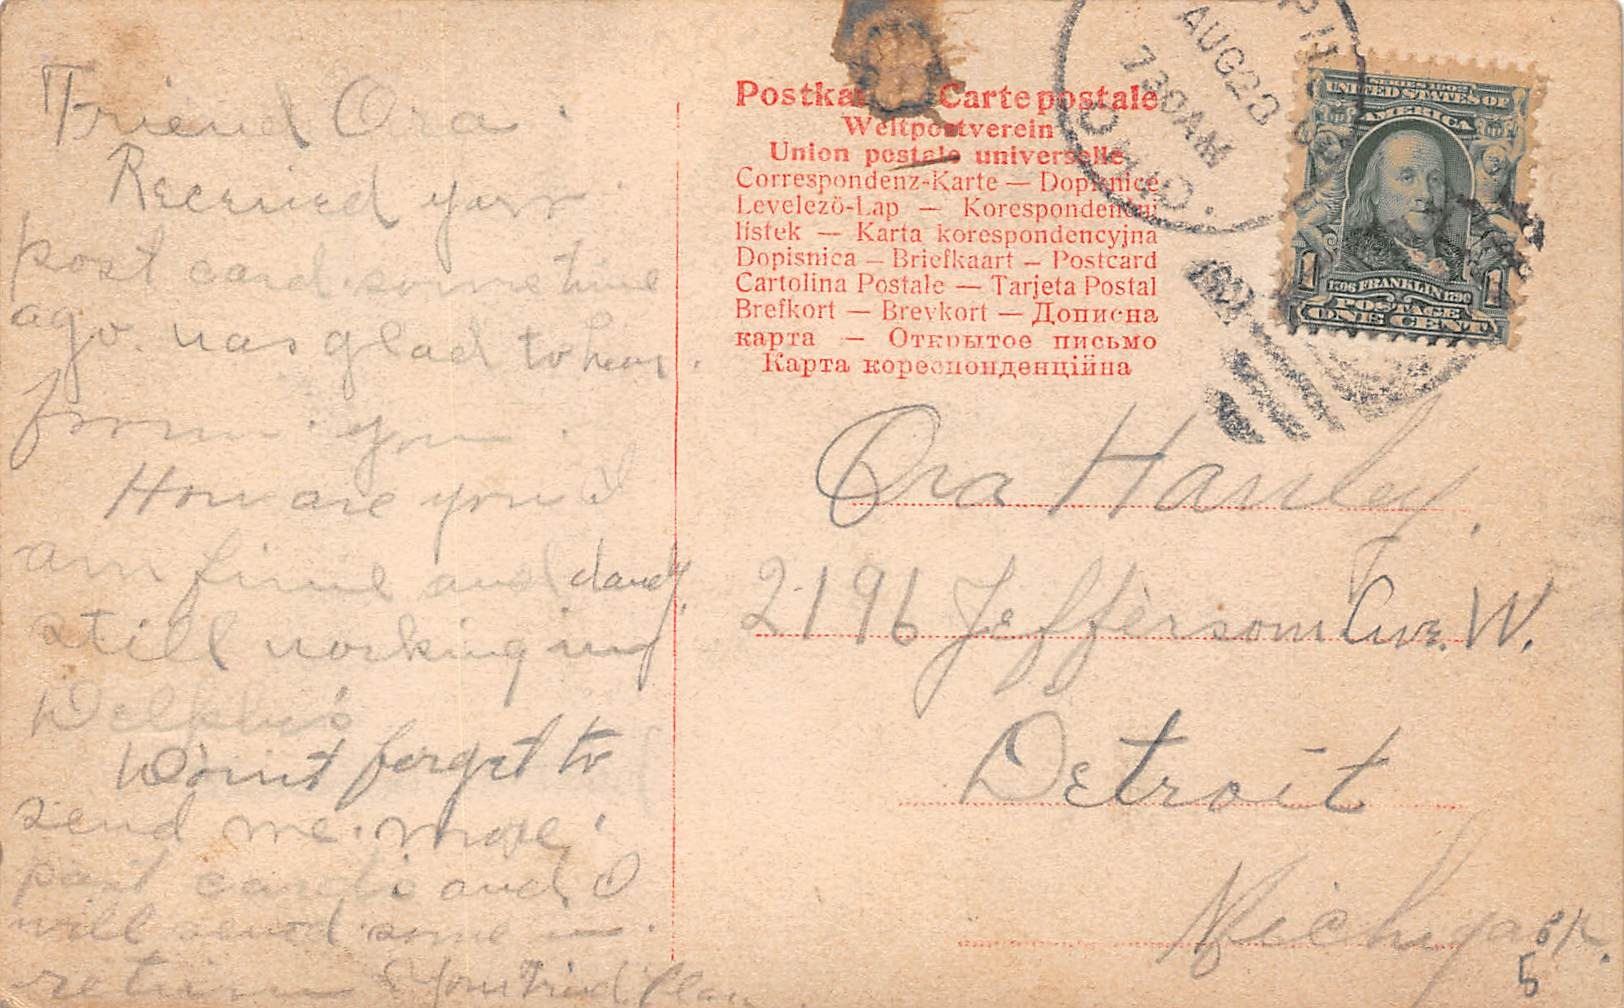 Friend Ora.
Received your
post card sometime
ago. was glad to hear
from you.
How are you I
am fine and dandy
still working in
Delphos
Don't forget to
send me more
post cards and I
will send some in
return Your Friend
Postka Carte postale
Weltpostverein
Union postale universelle
Correspondenz-Karte — Dopisnice
Levelező-Lap — Korespondencni
listek — Karta korespondencyjna
Dopisnica — Briefkaart — Postcard
Cartolina Postale — Tarjeta Postal
Brefkort — Brevkort — Дописна
карта — Открытое письмо
Карта кореспонденційна
AUG 23
7 30 AM
OHIO
SERIES 1902
UNITED STATES OF
AMERICA
1 1
1706 FRANKLIN 1790
POSTAGE
ONE CENT
Ora Hanley.
2196 Jefferson Ave. W.
Detroit
Michigan.
5